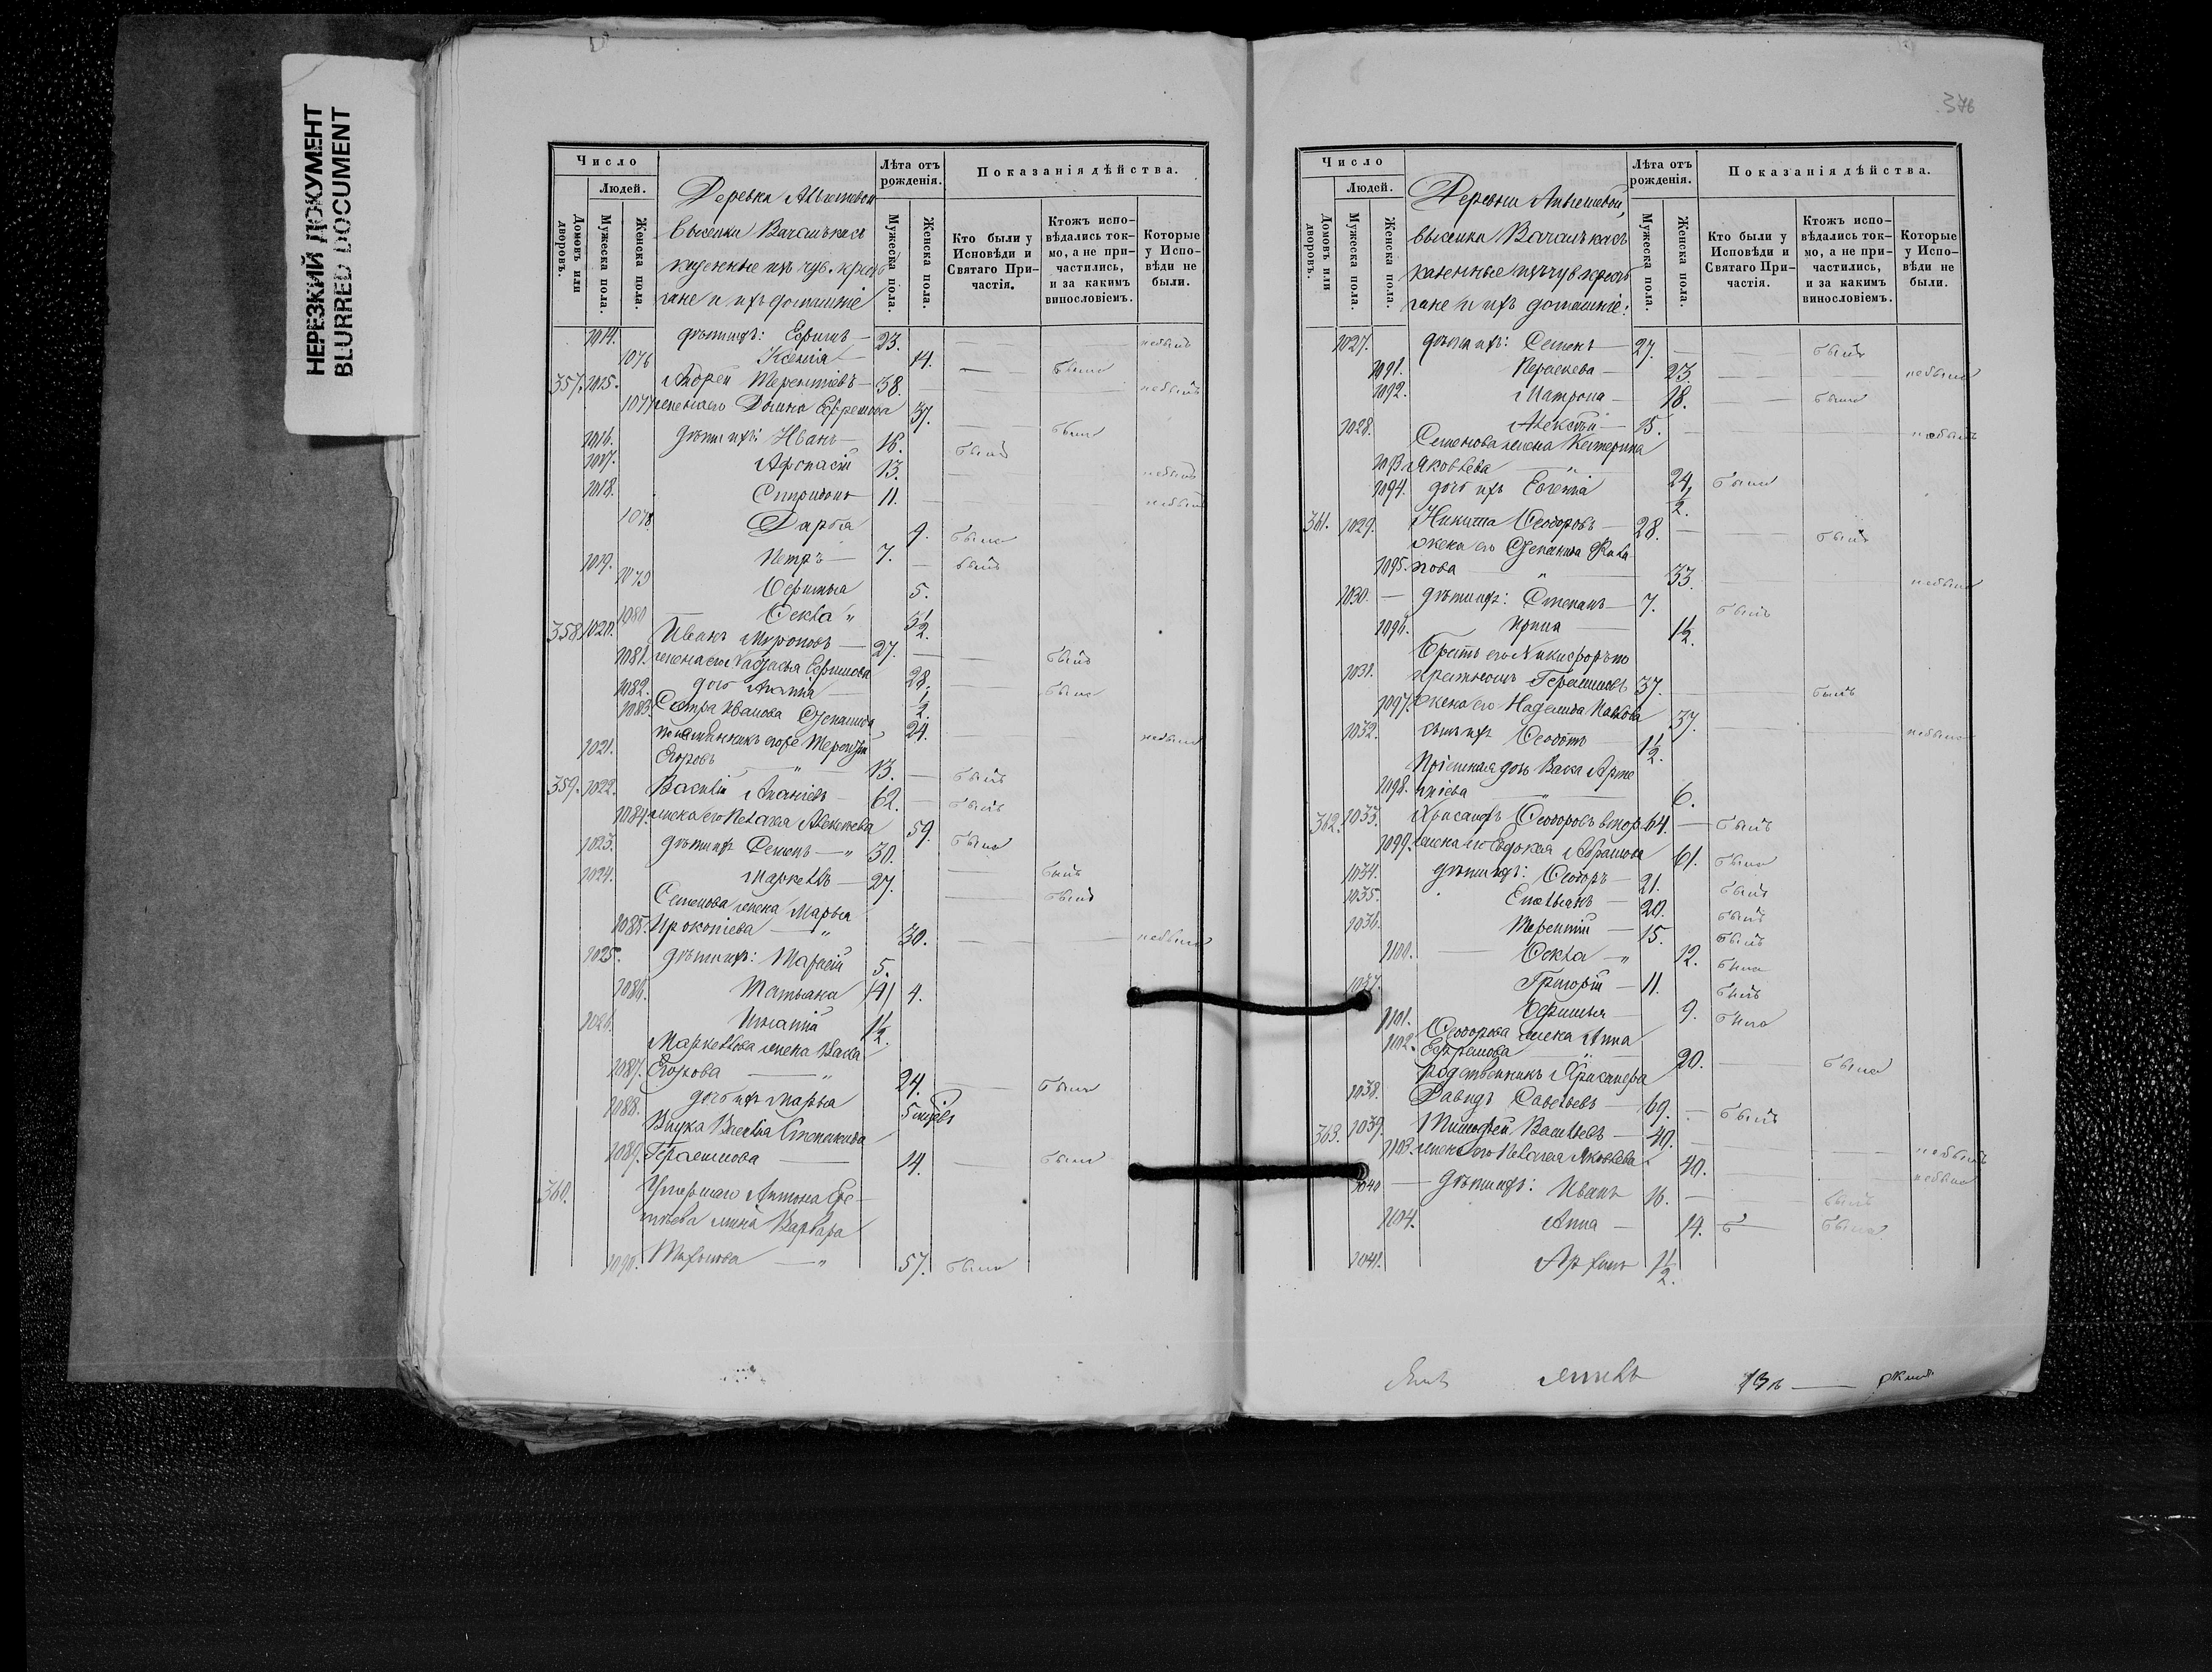 НЕРЕЗКИЙ ДОКУМЕНТ
BLURRED DOCUMENT
Число
Людей.
Домовъ или дворовъ.
Мужеска пола.
Женска пола.
Деревка
высепки
казенные изъ чув. крестъ
яне и ихъ домашніе
Лѣта отъ рожденія.
Мужеска пола.
Женска пола.
Показанія дѣйства.
Кто были у Исповѣди и Святаго Причастія.
Ктожъ исповѣдались токмо, а не причастились, и за какимъ винословіемъ.
Которые у Исповѣди не были.
1014. дѣти ихъ: Ефимъ — 23. небылъ
1076 Ксенія — 14. была
357. 1015. Андрей Терентіевъ — 38. небылъ
1077 жена его Домна Ефремова 37. была
1016. дѣти ихъ: Иванъ — 16. былъ
1017. Афонасій 13. небылъ
1018. Спиридонъ 11. небылъ
1078. Дарья 9. была
1019. Петръ — 7. былъ
1079 Ефимья 5.
1080 Ѳекла " 3½.
358. 1020. Иванъ — 27. былъ
1081. жена его Надежда Ефимова 28. была
1082. дочь Анна — ½.
1083. Сестра Иванова Степанида 24. небыла
1021. Егоровъ " 13. — былъ
359. 1022. Василій Ананіевъ — 62. — былъ
1084. жена его Пелагея Алексѣева 59. была
1023. дѣти ихъ Семенъ — " 30. былъ
1024. Маркеллъ — 27. былъ
Семенова жена Марья
1085. Прокопіева — " 30. небыла
1025. дѣти ихъ: 5.
1086. Татьяна 4.
1026. Игнатій 1½.
Маркеллова жена Васса
1087. Егорова — " 24. была
1088. дочь ихъ Марья 5
Внука Василья Степанида
1089. Герасимова — 14. — была
360. Умершаго Антона
жена Варвара
1090. " 57. была
376
Число
Людей.
Домовъ или дворовъ.
Мужеска пола.
Женска пола.
Деревни
высепка
казенные изъ чув крестъ
яне и ихъ домашніе:
Лѣта отъ рожденія.
Мужеска пола.
Женска пола.
Показанія дѣйства.
Кто были у Исповѣди и Святаго Причастія.
Ктожъ исповѣдались токмо, а не причастились, и за какимъ винословіемъ.
Которые у Исповѣди не были.
1027. дѣти ихъ: Семенъ — 27. былъ
1091. Параскева — 23. небыла
1092. Матрона — 18. была
1028. Алексѣй — 15. небылъ
Семенова жена Катерина
1093 Яковлева — " 24. была
1094. дочь ихъ Евгенія ½.
361. 1029. Никита Ѳеодоровъ — 28. былъ
жена его Степанида
1095. " 33. небыла
1030. — дѣти ихъ: Степанъ — 7. былъ
1096. Ирина — 1½.
Братъ его Никифоръ по
1031. крестномъ Герасимовъ 37. былъ
1097. жена его Надежда Павлова 37. небыла
1032. сынъ ихъ Ѳеодотъ 1½.
Пріемная дочь Васса Арте
1098. міева " 6.
362. 1033. Хрисанфъ Ѳеодоровъ втор. 64. — былъ
1099. жена его Евдокія Абрамова 61. была
1034. дѣти ихъ: Ѳеодоръ — 21. былъ
1035. Емельянъ — 20. былъ
1036. Терентій — 15. былъ
1100. Ѳекла — " 12. была
1037. Григорій — 11. былъ
1101. Ефимья — 9. была
Ѳеодорова жена Анна
1102. Ефремова " 20. — была
родственникъ Хрисанфа
1038. Давидъ Савельевъ — 69. — былъ
363. 1039. Тимофей Васильевъ — 40. небылъ
1103. жена его Пелагея Яковлева 40. небыла
1040 — дѣти ихъ: Иванъ 16. былъ
1104. Анна — 14. б — была
1041. 1½.